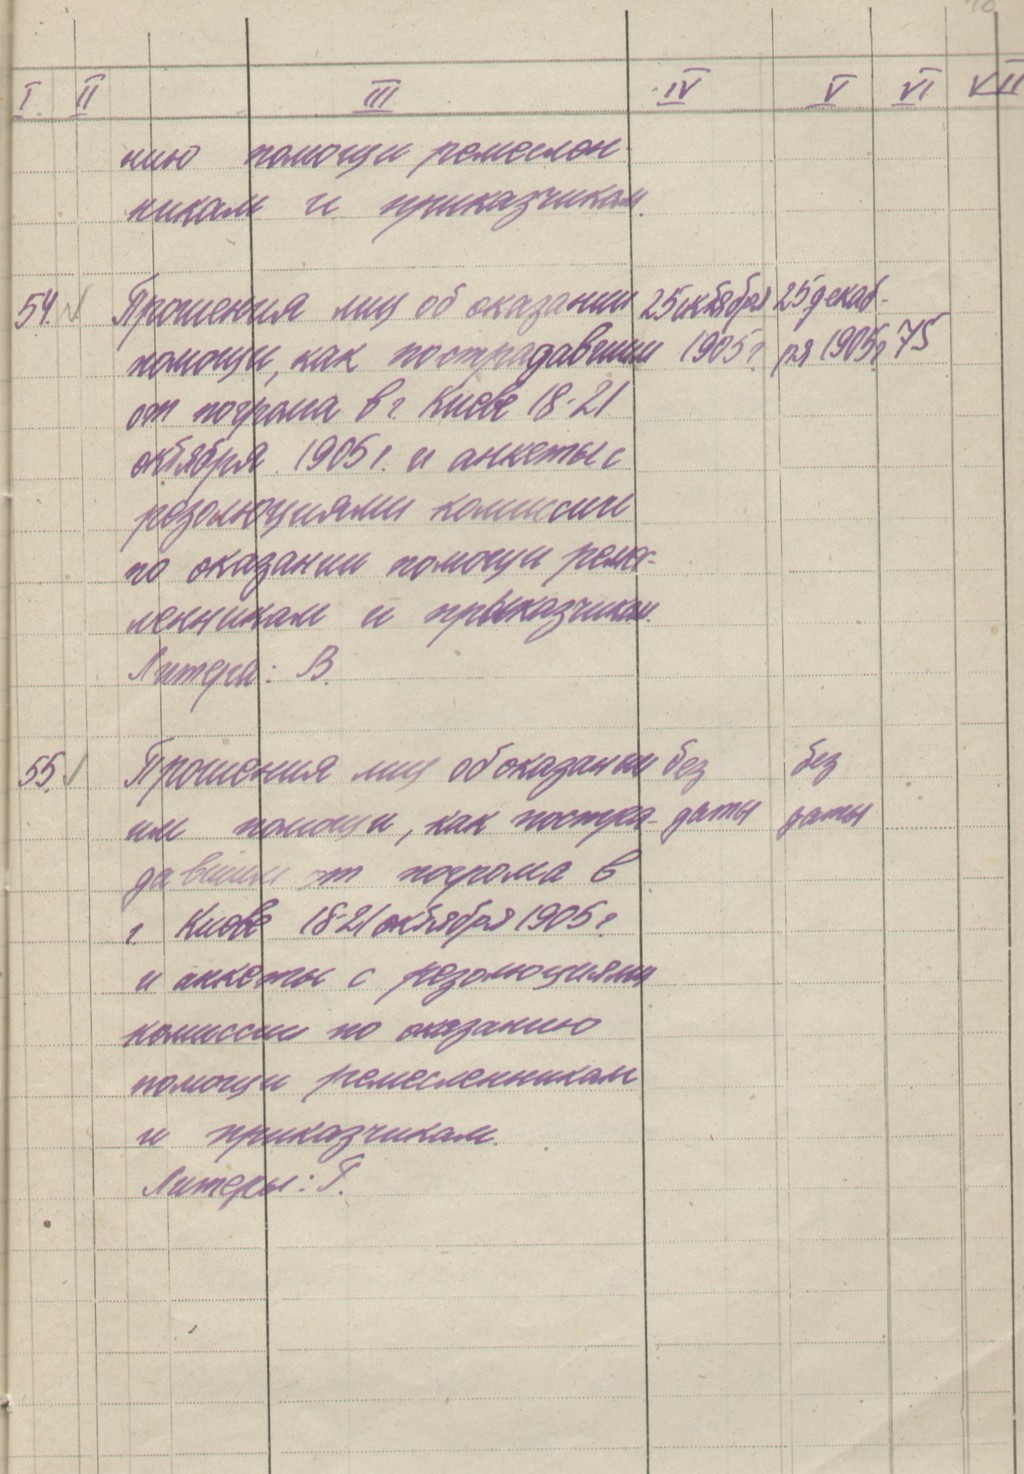 I II III IV V VI VII
нию помощи ремеслен-
никам и приказчикам.
54. Прошения лиц об оказании 25 октября 25 декаб-
помощи, как пострадавшим 1905 г. ря 1905 г. 75
от погрома в г. Киеве 18-21
октября 1905 г. и анкеты с
резолюциями комиссии
по оказании помощи реме-
ленникам и приказчикам.
Литера: В.
55. Прошения лиц об оказании без без
им помощи, как постра- даты даты
давшим от погрома в
г. Киеве 18-21 октября 1905 г.
и анкеты с резолюциями
комиссии по оказанию
помощи ремесленникам
и приказчикам.
Литеры: Г.